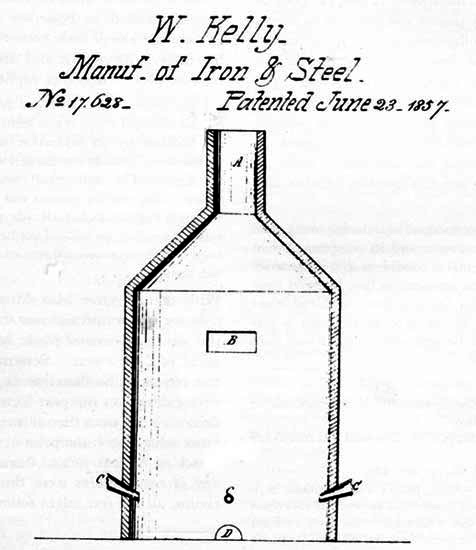 W. Kelly.
Manuf. of Iron & Steel.
No 17,628. Patented June 23. 1857.
A
B
C C
D